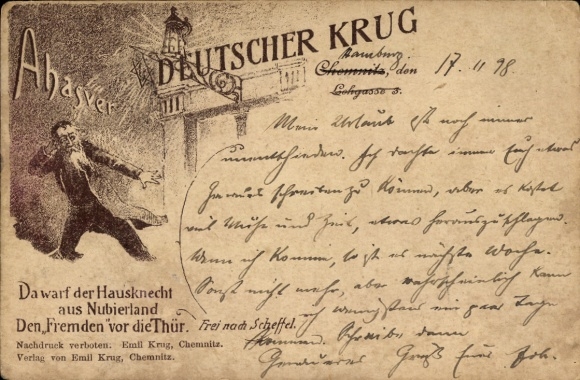 Ahasver
DEUTSCHER KRUG
Bamberg
Chemnitz, den 17. 11 98.
Lohgasse 3.
Mein Urlaub ist noch immer
unentschieden. Ich dachte immer Euch etwas
Genaues schreiben zu können, aber es kostet
viel Mühe und Zeit, etwas herauszuschlagen.
Wenn ich komme, so ist es nächste Woche.
Sonst nicht mehr, aber wahrscheinlich kann
ich wenigstens ein paar Tage
kommen. Schreibe dann
Genaueres Gruß Euer
Da warf der Hausknecht
aus Nubierland
Den „Fremden" vor die Thür.
Frei nach Scheffel.
Nachdruck verboten. Emil Krug, Chemnitz.
Verlag von Emil Krug, Chemnitz.